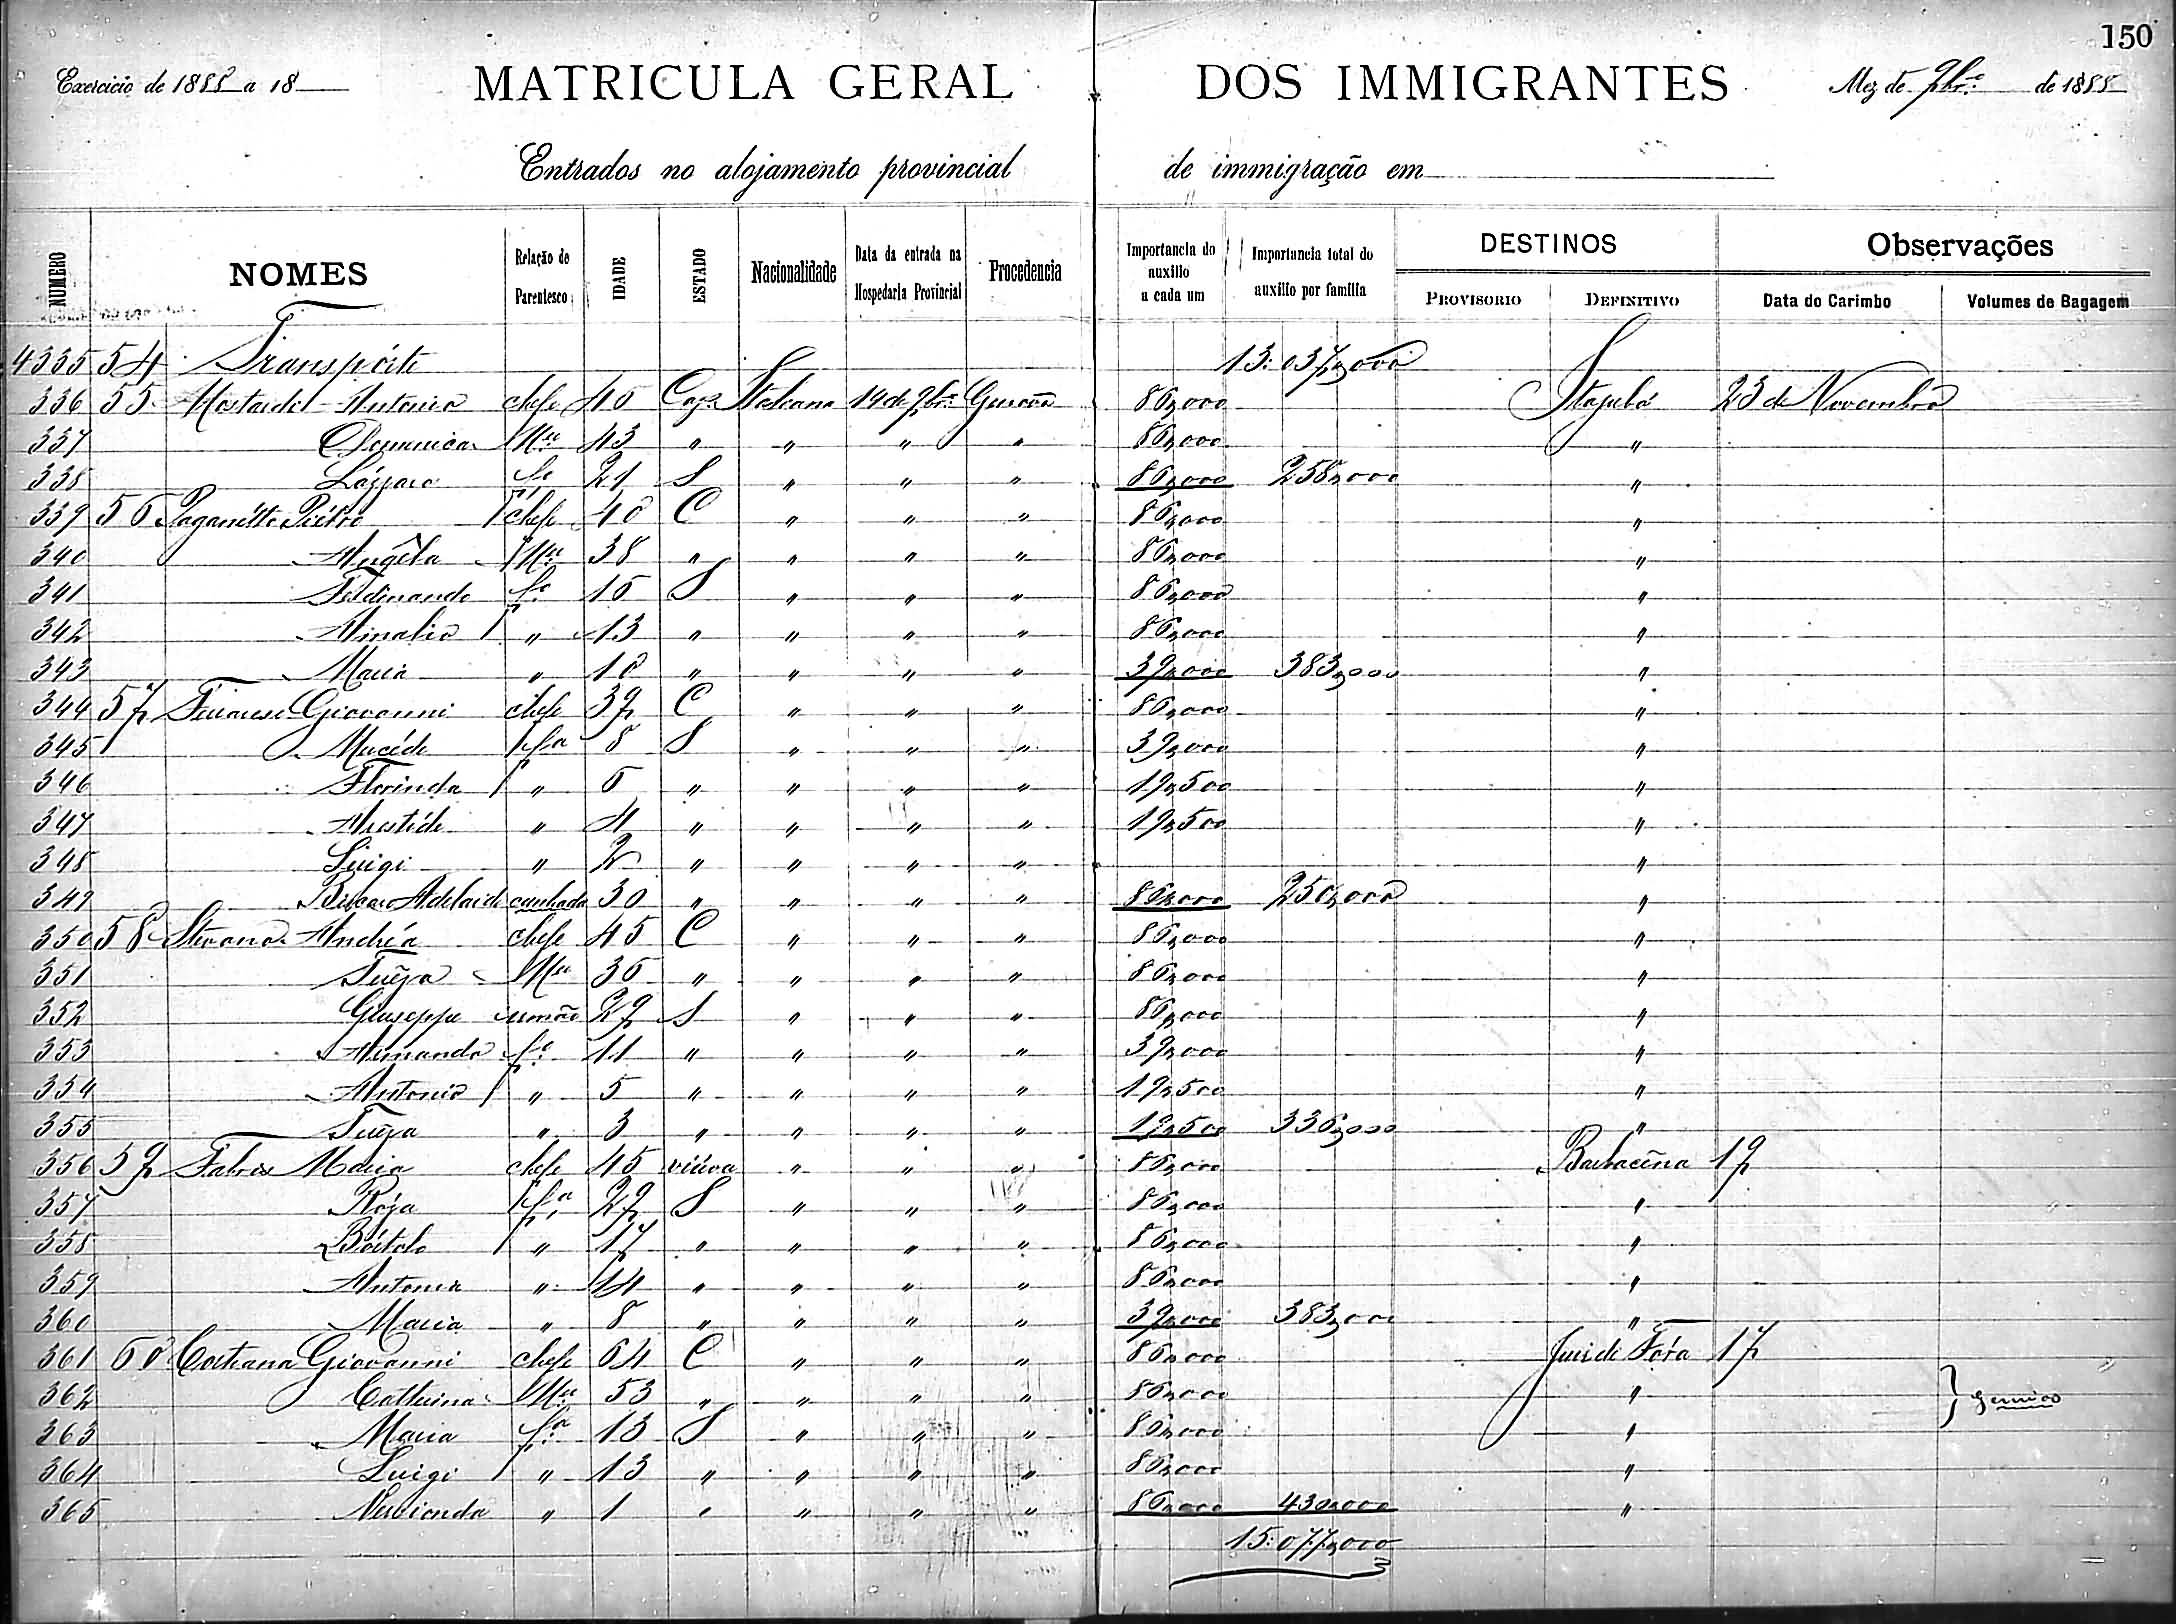 150
Exercicio de 1888 a 18
MATRICULA GERAL DOS IMMIGRANTES
Mez de 9br.º de 1888
Entrados no alojamento provincial de immigração em
NUMERO NOMES Relação de Parentesco IDADE ESTADO Nacionalidade Data da entrada na Hospedaria Provincial Procedencia Importancia do auxilio a cada um Importancia total do auxilio por familia DESTINOS PROVISORIO DEFINITIVO Observações Data do Carimbo Volumes de Bagagem
4335 54 Transpórte 13:037,000
336 55 Antonio chefe 46 Italiana 14 de 9br.º Genova 86,000 Itajubá 23 de Novembro
337 Domenica Mer 43 " " " " 86,000 "
338 Lázzaro fº 21 S " " " 86,000 258,000 "
339 56 Paganétto Piétro chefe 40 C " " " 86,000 "
340 Angéla Mer 38 " " " " 86,000 "
341 Ferdinando fº 16 S " " " 86,000 "
342 " 13 " " " " 86,000 "
343 Maria " 10 " " " " 39,000 383,000 "
344 57 Giovanni chefe 39 C " " " 86,000 "
345 fª 8 S " " " 39,000 "
346 Florinda " 6 " " " " 19,500 "
347 " 4 " " " " 19,500 "
348 Luigi " 2 " " " " "
349 Adelaide cunhada 30 " " " " 86,000 250,000 "
350 58 Stevana Andréa chefe 45 C " " " 86,000 "
351 Mer 36 " " " " 86,000 "
352 Giuseppe irmão 29 S " " " 86,000 "
353 fº 11 " " " " 39,000 "
354 Antonio " 5 " " " " 19,500 "
355 " 3 " " " " 19,500 336,000 "
356 59 Fabris Maria chefe 45 viúva " " " 86,000 Barbacêna 19
357 Róza fª 22 S " " " 86,000 "
358 Bórtolo " 17 " " " " 86,000 "
359 Antonia " 14 " " " " 86,000 "
360 Maria " 8 " " " " 39,000 383,000 "
361 60 Giovanni chefe 64 C " " " 86,000 Juiz de Fóra 17
362 Catterina Mer 53 " " " " 86,000 "
363 Maria fª 13 S " " " 86,000 " } gemeos
364 Luigi " 13 " " " " 86,000 "
365 " 1 " " " " 86,000 430,000 "
15:077,000